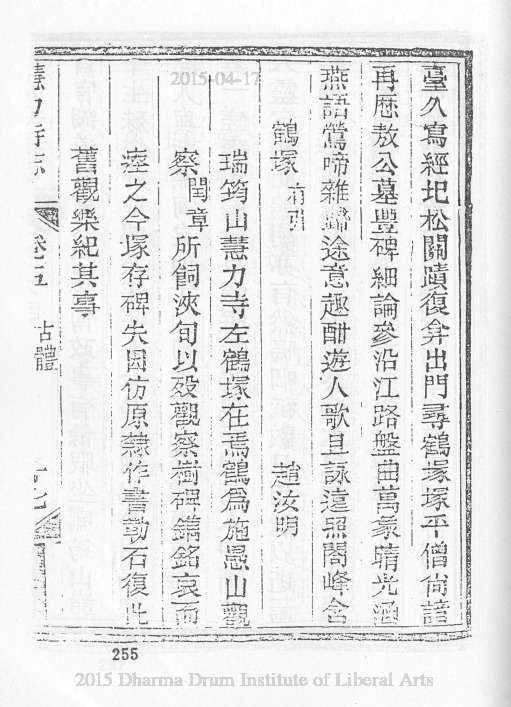 臺久寫經圯松關蹟復弇出門尋鶴塚塚平僧尙諳
再歷敖公墓豐碑細論參沿江路盤曲萬象晴光涵
燕語鶯啼雜歸途意趣酣遊人歌且詠遠照閣峰含
鶴塚 有引 趙汝明
瑞筠山慧力寺左鶴塚在焉鶴爲施愚山觀
察閏章所飼浹旬以歿觀察樹碑鐫銘哀而
瘞之今塚存碑失因仿原隸作書勒石復此
舊觀樂紀其事
慧力寺志 卷五 古體
255
2015-04-17
2015 Dharma Drum Institute of Liberal Arts